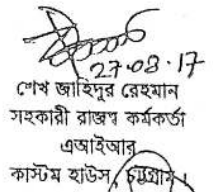 27-08-17
শেখ জাহিদুর রেহমান
সহকারী রাজস্ব কর্মকর্তা
এআইআর
কাস্টম হাউস, চট্টগ্রাম।